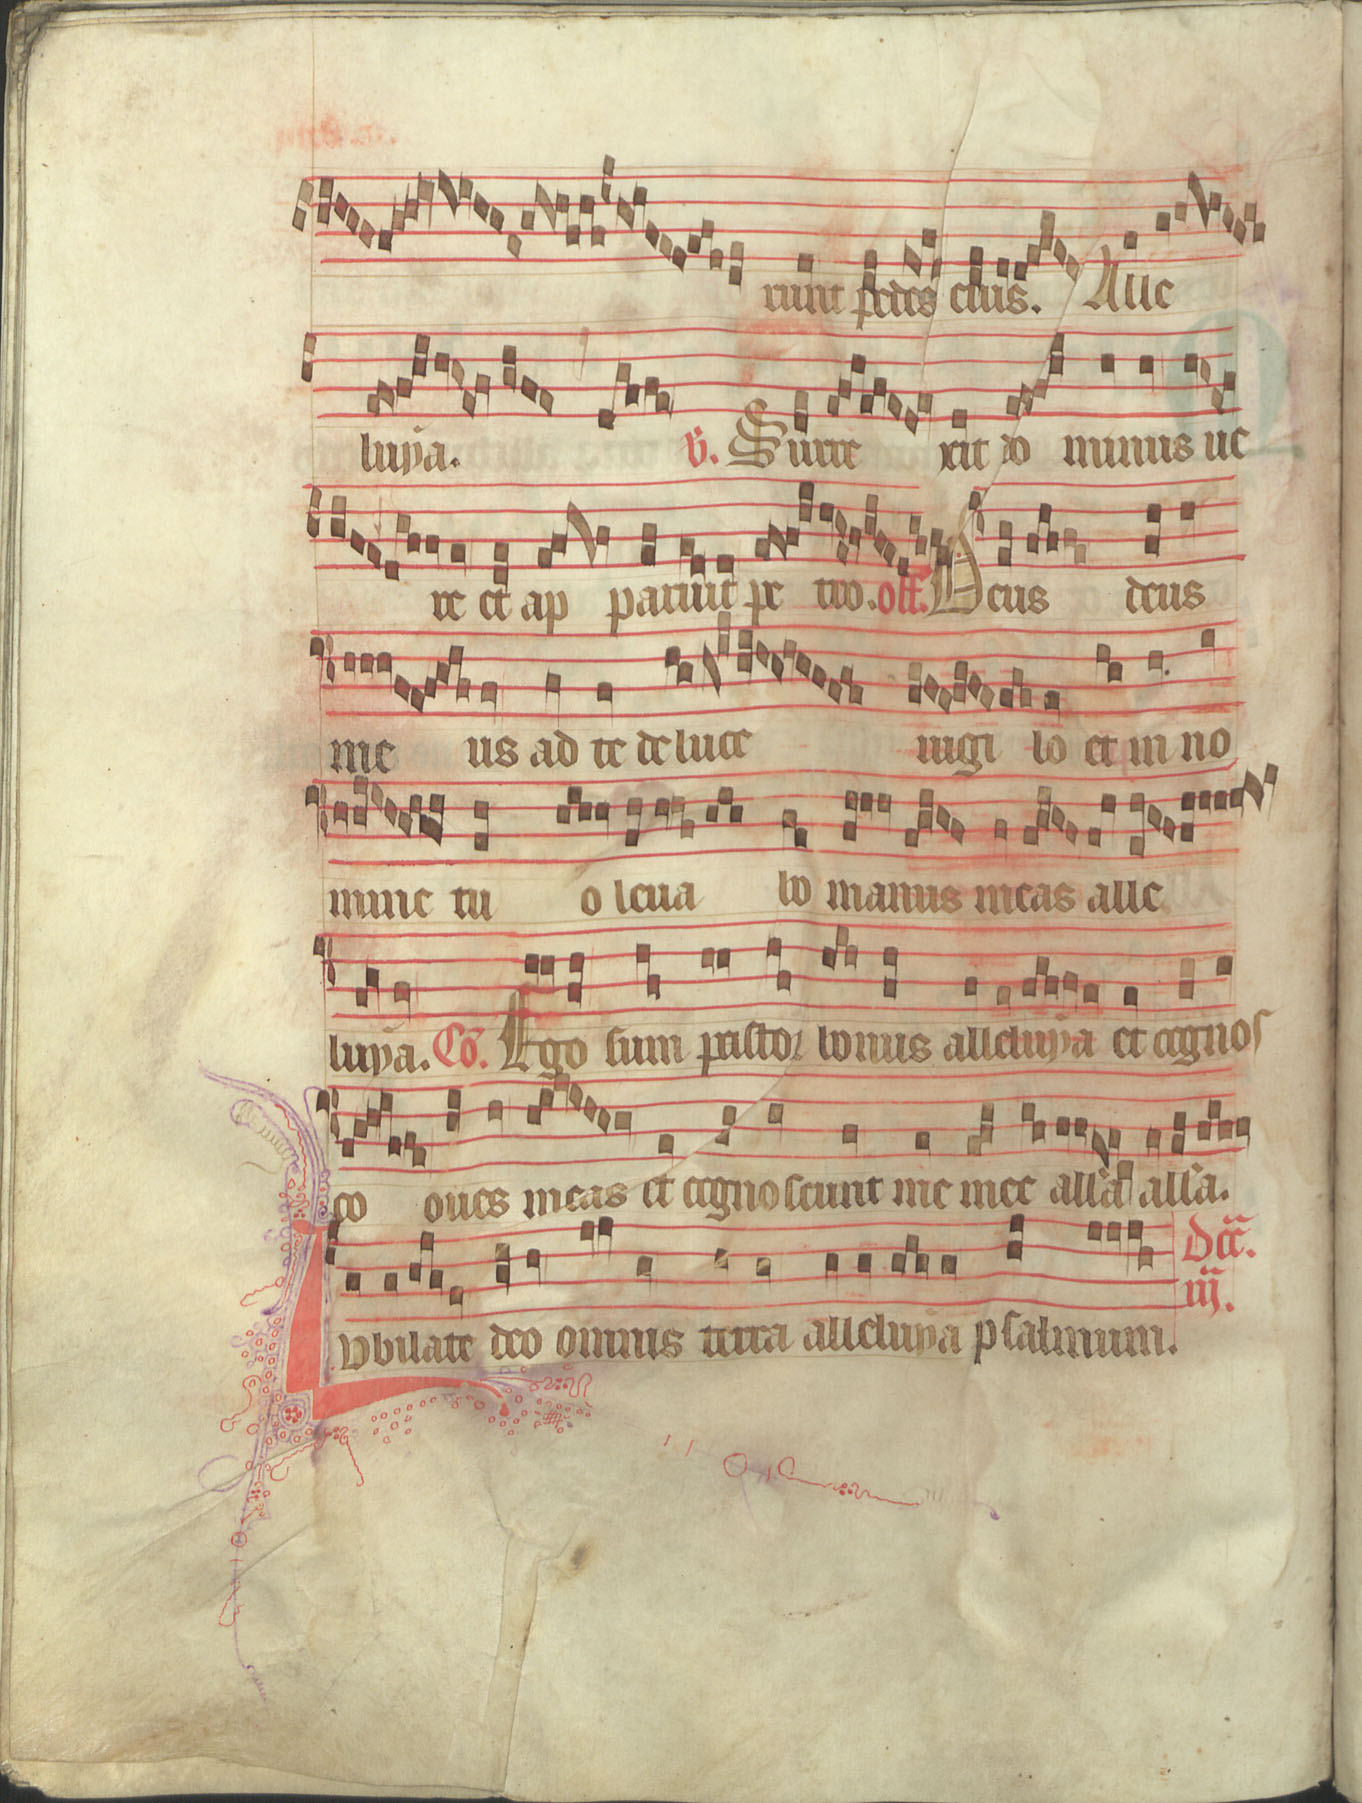 runt pedes eius. Alle
luya. V. Surre xit do minus ue
re et ap paruit pe tro. off. Deus deus
me us ad te de luce uigi lo et in no
mine tu o leua bo manus meas alle
luya. Co. Ego sum pastor bonus alleluya et cognos
co oues meas et cognoscunt me mee alla alla.
Dca. iij.
Iubilate deo omnis terra alleluya psalmum.